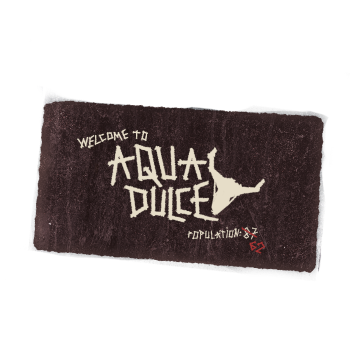 WELCOME TO
AQUA
DULCE
POPULATION: 87
62